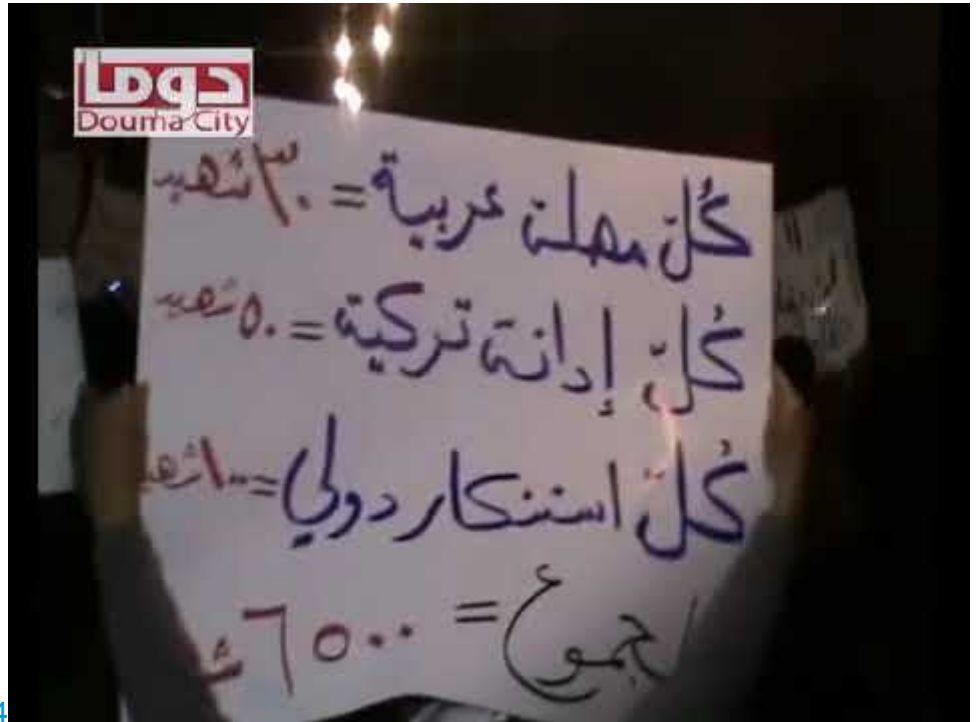 دوما
Douma City
كُلّ مهلة عربية = ٣٠ شهيد
كُلّ إدانة تركية = ٥٠ شهيد
كُلّ استنكار دولي = ١٠٠ شهيد
المجموع = ٦٥٠٠